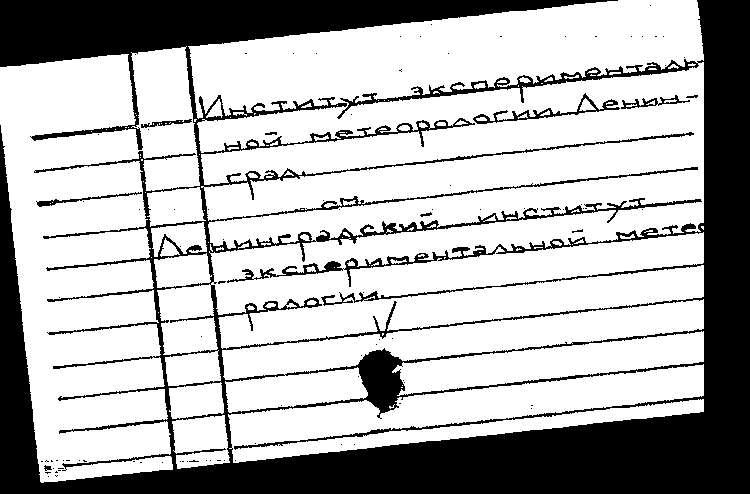 Институт эксперименталь-
ной метеорологии. Ленин-
град.
см.
Ленинградский институт
экспериментальной метео-
рологии.